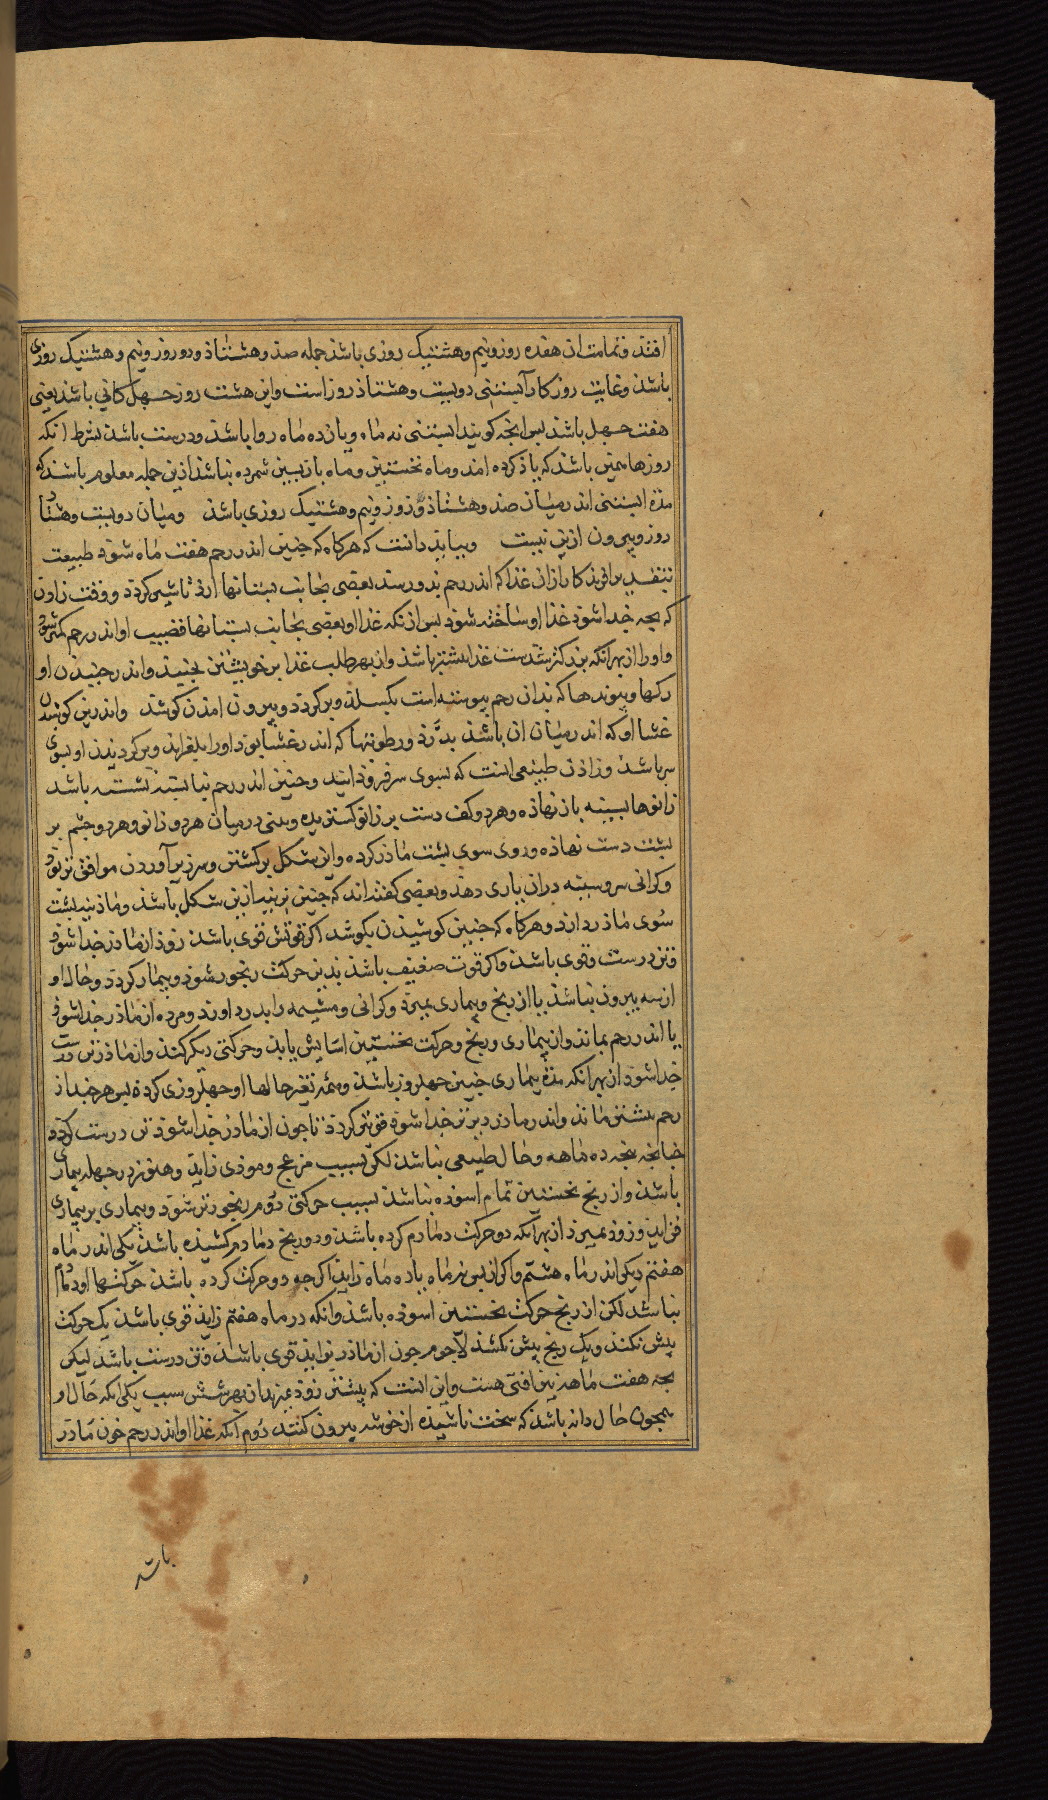 افتد و تمامت ان هفده روز و نیم و هشتیک روزی باشد جمله صد و هشتاذ و دو روز و نیم و هشتیک روزی
باشد و غایت روزکار آبستنی دویست و هشتاذ روز است و این هشت روز جهل کانی باشد یعنی
هفت جهل باشد بس انجه کویند ابستنی نه ماه و یازده ماه روا باشد و درست باشد بشرط انکه
روزها همین باشد که یاذ کرده امد و ماه نخستین و ماه بازبسین شمرده نباشد ازین جمله معلوم باشد که
مدة ابستنی اندر میان صد و هشتاذ و روز و نیم و هشتیک روزی باشد و میان دویست و هشتاد
روز و بیرون ازین نیست و ببایذ دانست که هرکاه که جنین اندر رحم هفت ماه شوذ طبیعت
بتقدیر افریذکار از ان غذا که اندر رحم بدو رسد بعضی بجانب بستانها ارد تا شیر کردد و وقت زادن
که بجه جدا شوذ غذا او ساخته شوذ بس از انکه غذا او بعضی بجانب بستانها نصیب او اندر رحم کمتر شود
و او را از بهر انکه بزرکتر شدست غذا بیشتر باشد و از بهر طلب غذا بر خویشتن بجنبد و اندر جنبیدن او
رکها و بیوندها که بدان رحم بیوسته است بکسلد و برکردد و بیرون امدن کوشد و اندرین کوشیدن
غشا او که اندر میان ان باشد بدرد و رطوبتها که اندر غشا بود او را بلغزاند و برکردیدن او بسوی
سر باشد و زادن طبیعی انست که بسوی سر فروذ اید و جنین اندر رحم نشسته باشد
زانوها بسینه باز نهاذه و هر دو کف دست بر زانو کسترده و بینی در میان هر دو زانو و هر دو جشم بر
بشت دست نهاذه و روی سوی بشت ماذر کرده و این شکل برکشتن و سر زیر آوردن موافق تر بود
و کرانی سر و سینه دران یاری دهد و بعضی کفته اند که جنین نرینه ازین شکل باشد و ماذینه بشت
سوی ماذر دارد و هرکاه که جنین کوشیدن بکوشد اکر قوتش قوی باشد زوذ از ماذر جدا شوذ
و تن درست و قوی باشد و اکر قوت ضعیف باشد بدین حرکت رنجور شوذ و بیمار کردد و حال او
از سه بیرون نباشد یا از رنج و بیماری بمیرد و کرانی و مشیمه را بدرد اورد و مرده از ماذر جدا شوذ
یا اندر رحم بماند و از بیماری و رنج و حرکت نخستین اسایش یابد و حرکتی دیکر کند و از ماذر تن درست
جدا شوذ از بهر انکه مدة بیماری جنین جهل روز باشد و همه تغیر حالها او جهل روزی کرده بس هرجند از
رحم بیشتر ماند و اندر ماذر دیرتر جدا شوذ قوی تر کردد تا جون از ماذر جدا شوذ تن درست کردد
جنانجه بجه ده ماهه و حال طبیعی نباشد لکن بسبب مزعج و موذی زاید و هنوز در جهلهٔ بیماری
باشد و از رنج نخستین تمام اسوده نباشد بسبب حرکتی دوم رنجورتر شوذ و بیماری بر بیماری
فزاید و زوذ بمیرد از بهر انکه دو حرکت دمادم کرده باشد و دو رنج دمادم کشیده باشد یکی اندر ماه
هفتم دیکر اندر ماه هشتم و اکر از بس نه ماه یا ده ماه زاید اکرجه دو حرکت کرده باشد حرکتها او دمادم
نباشد لکن از رنج حرکت نخستین اسوده باشد و انکه در ماه هفتم زاید قوی باشد یک حرکت
بیش نکند و یک رنج بیش نکشد لاجرم جون از ماذر بزاید قوی باشد و تن درست باشد لیکن
بجه هفت ماهه نیز افتی هست و این انست که بیشتر زوذ بمیرد از بهر شش سبب یکی انکه حال او
همجون حال دانه باشد که سخت ناشده از خوشه بیرون کنند دوم آنکه غذا او اندر رحم خون ماذر
باشد